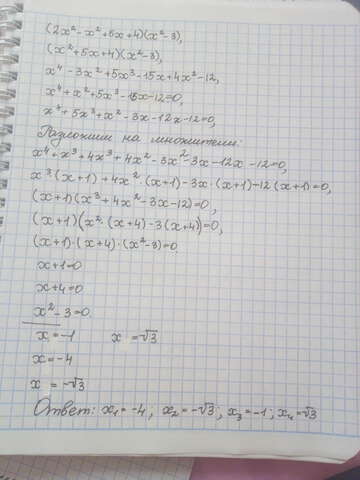 (2x²-x²+5x+4)(x²-3),
(x²+5x+4)(x²-3),
x⁴-3x²+5x³-15x+4x²-12,
x⁴+x²+5x³-15x-12=0,
x⁴+5x³+x²-3x-12x-12=0,
Разложим на множители:
x⁴+x³+4x³+4x²-3x²-3x-12x-12=0,
x³(x+1)+4x²·(x+1)-3x·(x+1)-12(x+1)=0,
(x+1)(x³+4x²-3x-12)=0,
(x+1)(x²·(x+4)-3(x+4))=0,
(x+1)·(x+4)·(x²-3)=0
x+1=0
x+4=0
x²-3=0
x=-1 x=√3
x=-4
x=-√3
Ответ: x₁=-4; x₂=-√3; x₃=-1; x₄=√3